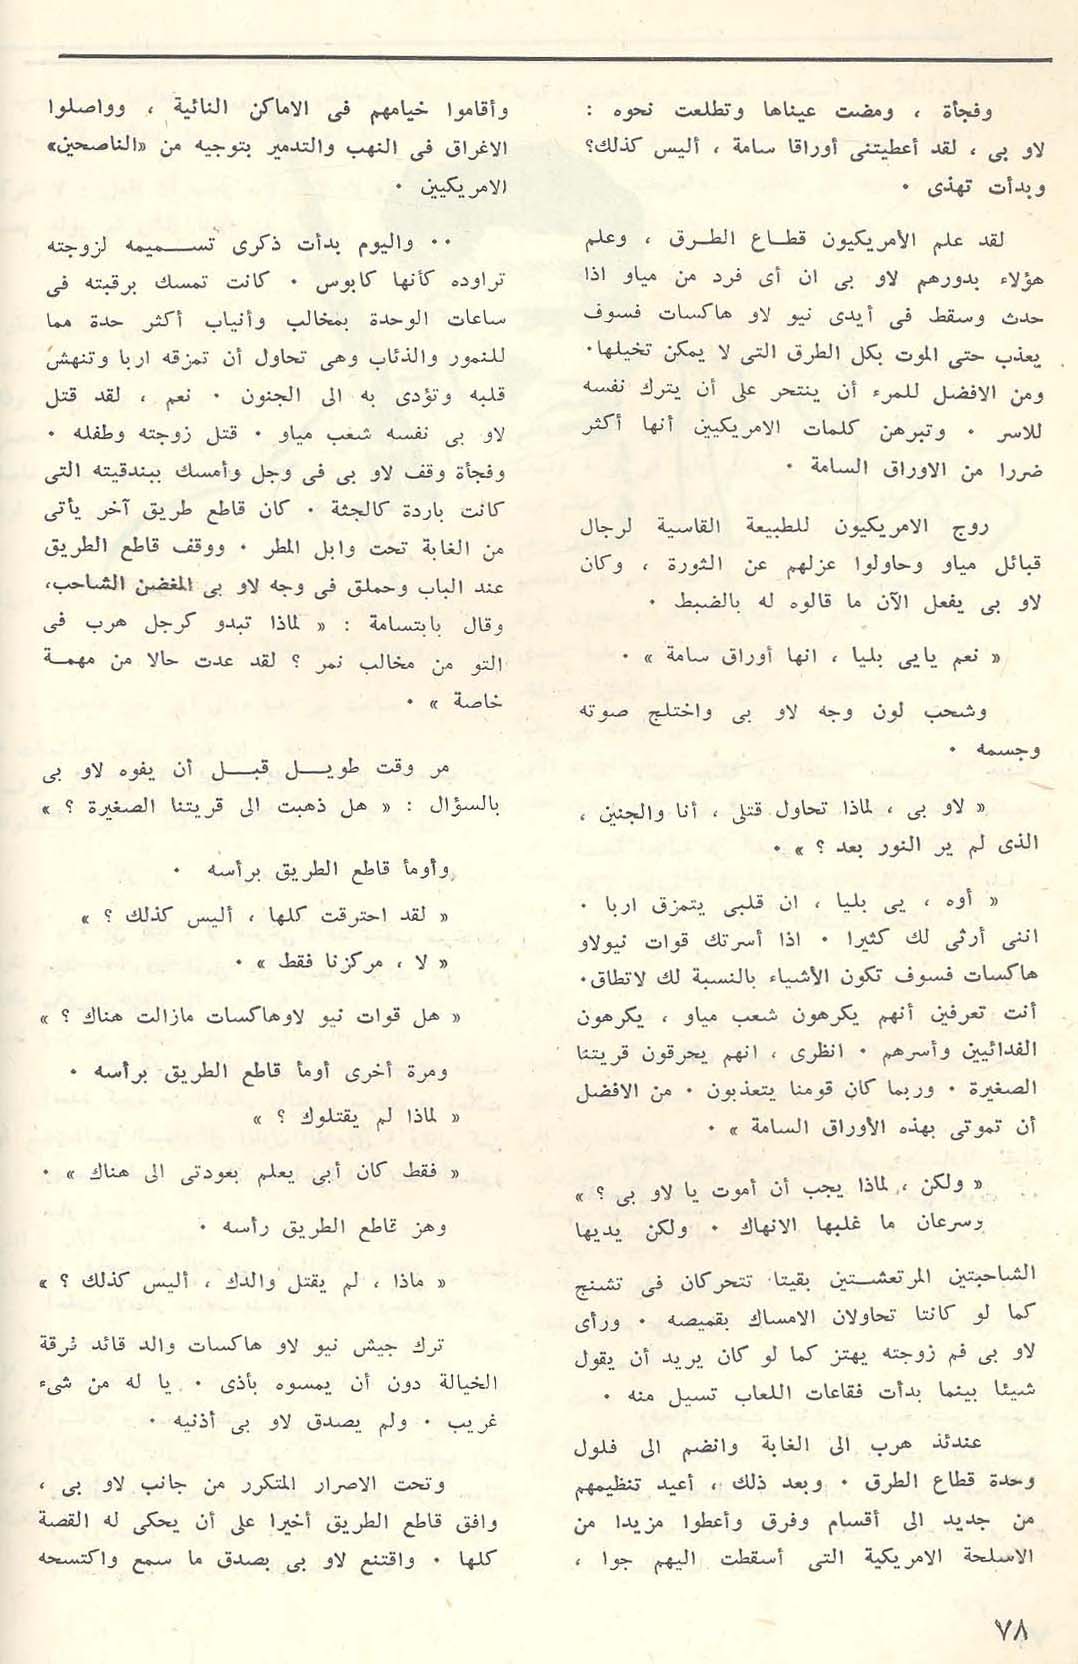 وفجأة ، ومضت عيناها وتطلعت نحوه :
لاو بى ، لقد أعطيتنى أوراقا سامة ، أليس كذلك؟
وبدأت تهذى ٠
لقد علم الأمريكيون قطاع الطرق ، وعلم
هؤلاء بدورهم لاو بى ان أى فرد من مياو اذا
حدث وسقط فى أيدى نيو لاو هاكسات فسوف
يعذب حتى الموت بكل الطرق التى لا يمكن تخيلها٠
ومن الافضل للمرء أن ينتحر على أن يترك نفسه
للاسر ٠ وتبرهن كلمات الامريكيين أنها أكثر
ضررا من الاوراق السامة ٠
روج الامريكيون للطبيعة القاسية لرجال
قبائل مياو وحاولوا عزلهم عن الثورة ، وكان
لاو بى يفعل الآن ما قالوه له بالضبط ٠
« نعم يايى بليا ، انها أوراق سامة » ٠
وشحب لون وجه لاو بى واختلج صوته
وجسمه ٠
« لاو بى ، لماذا تحاول قتلى ، أنا والجنين ،
الذى لم ير النور بعد ؟ » ٠
« أوه ، يى بليا ، ان قلبى يتمزق اربا ٠
اننى أرثى لك كثيرا ٠ اذا أسرتك قوات نيولاو
هاكسات فسوف تكون الأشياء بالنسبة لك لاتطاق٠
أنت تعرفين أنهم يكرهون شعب مياو ، يكرهون
الفدائيين وأسرهم ٠ انظرى ، انهم يحرقون قريتنا
الصغيرة ٠ وربما كان قومنا يتعذبون ٠ من الافضل
أن تموتى بهذه الأوراق السامة » ٠
« ولكن ، لماذا يجب أن أموت يا لاو بى ؟ »
وسرعان ما غلبها الانهاك ٠ ولكن يديها
الشاحبتين المرتعشتين بقيتا تتحركان فى تشنج
كما لو كانتا تحاولان الامساك بقميصه ٠ ورأى
لاو بى فم زوجته يهتز كما لو كان يريد أن يقول
شيئا بينما بدأت فقاعات اللعاب تسيل منه ٠
عندئذ هرب الى الغابة وانضم الى فلول
وحدة قطاع الطرق ٠ وبعد ذلك ، أعيد تنظيمهم
من جديد الى أقسام وفرق وأعطوا مزيدا من
الاسلحة الامريكية التى أسقطت اليهم جوا ،
وأقاموا خيامهم فى الاماكن النائية ، وواصلوا
الاغراق فى النهب والتدمير بتوجيه من «الناصحين»
الامريكيين ٠
٠٠ واليوم بدأت ذكرى تسميمه لزوجته
تراوده كأنها كابوس ٠ كانت تمسك برقبته فى
ساعات الوحدة بمخالب وأنياب أكثر حدة مما
للنمور والذئاب وهى تحاول أن تمزقه اربا وتنهش
قلبه وتؤدى به الى الجنون ٠ نعم ، لقد قتل
لاو بى نفسه شعب مياو ٠ قتل زوجته وطفله ٠
وفجأة وقف لاو بى فى وجل وأمسك ببندقيته التى
كانت باردة كالجثة ٠ كان قاطع طريق آخر يأتى
من الغابة تحت وابل المطر ٠ ووقف قاطع الطريق
عند الباب وحملق فى وجه لاو بى المغضن الشاحب،
وقال بابتسامة : « لماذا تبدو كرجل هرب فى
التو من مخالب نمر ؟ لقد عدت حالا من مهمة
خاصة » ٠
مر وقت طويل قبل أن يفوه لاو بى
بالسؤال : « هل ذهبت الى قريتنا الصغيرة ؟ »
وأومأ قاطع الطريق برأسه ٠
« لقد احترقت كلها ، أليس كذلك ؟ »
« لا ، مركزنا فقط » ٠
« هل قوات نيو لاوهاكسات مازالت هناك ؟ »
ومرة أخرى أومأ قاطع الطريق برأسه ٠
« لماذا لم يقتلوك ؟ »
« فقط كان أبى يعلم بعودتى الى هناك » ٠
وهز قاطع الطريق رأسه ٠
« ماذا ، لم يقتل والدك ، أليس كذلك ؟ »
ترك جيش نيو لاو هاكسات والد قائد فرقة
الخيالة دون أن يمسوه بأذى ٠ يا له من شىء
غريب ٠ ولم يصدق لاو بى أذنيه ٠
وتحت الاصرار المتكرر من جانب لاو بى ،
وافق قاطع الطريق أخيرا على أن يحكى له القصة
كلها ٠ واقتنع لاو بى بصدق ما سمع واكتسحه
٧٨